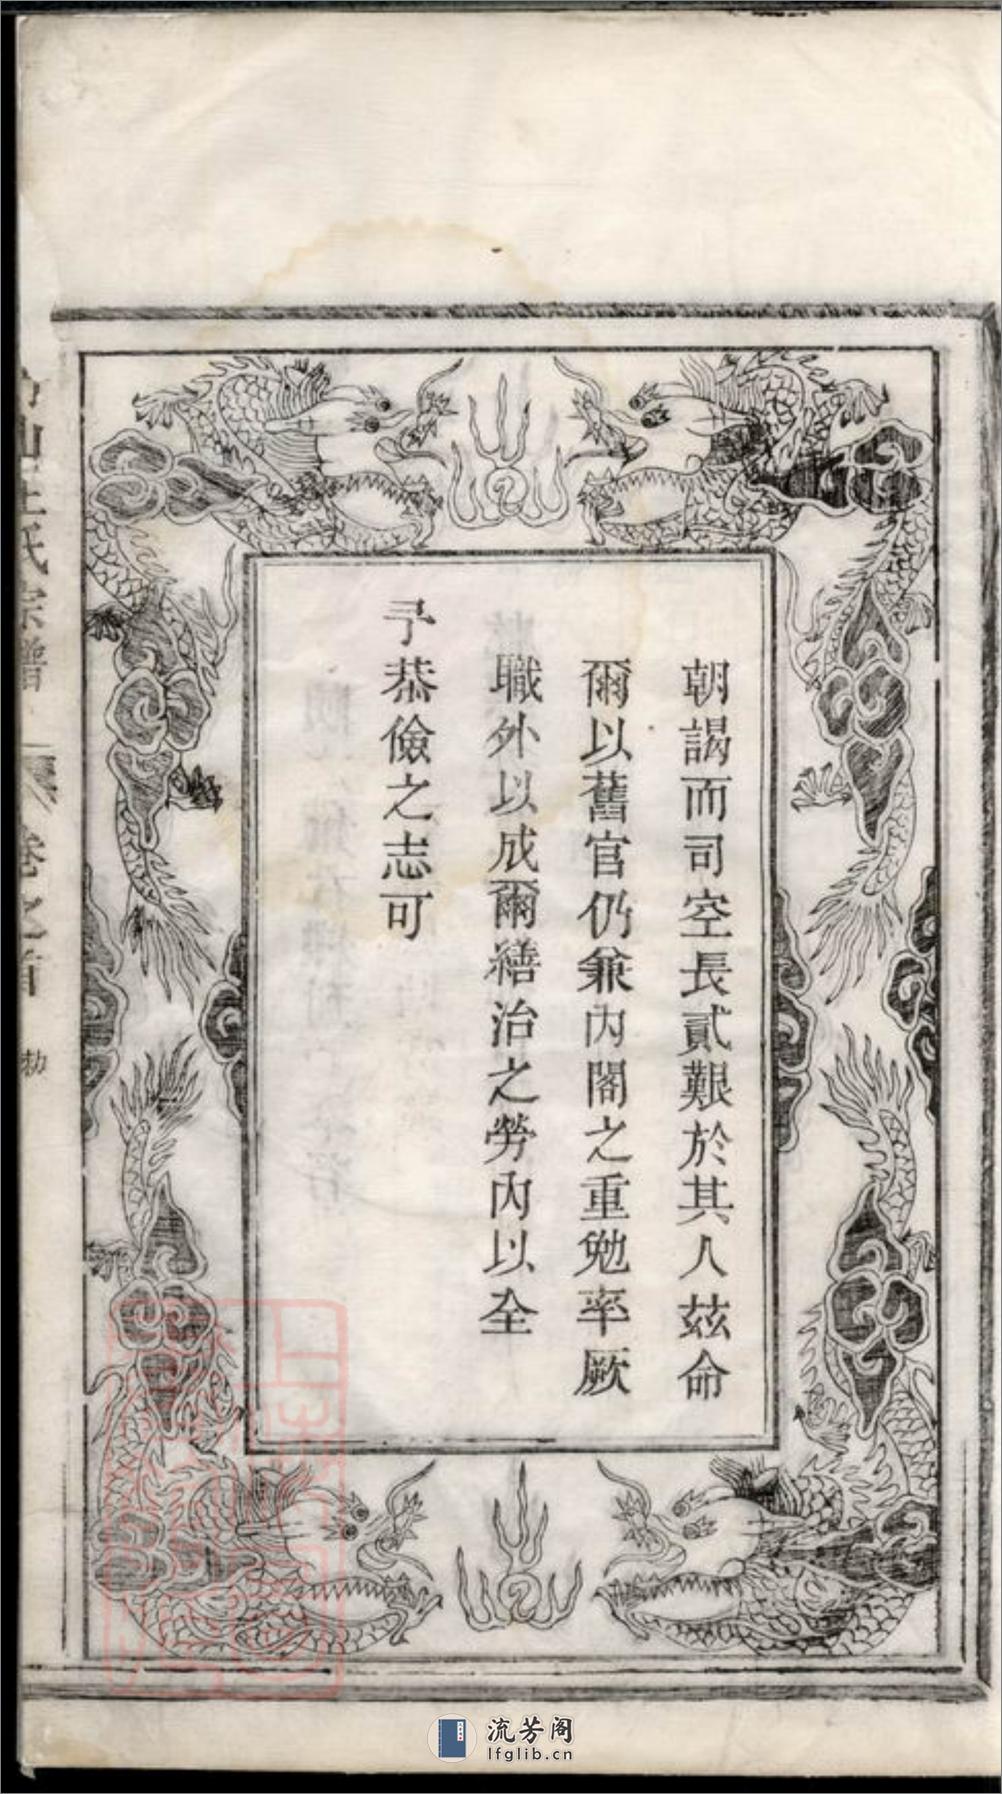 朝謁而司空長貳艱於其人茲命
爾以舊官仍兼內閣之重勉率厥
職外以成爾繕治之勞內以全
予恭儉之志可
氏宗譜
卷之首
勅
流芳阁
lfglib.cn